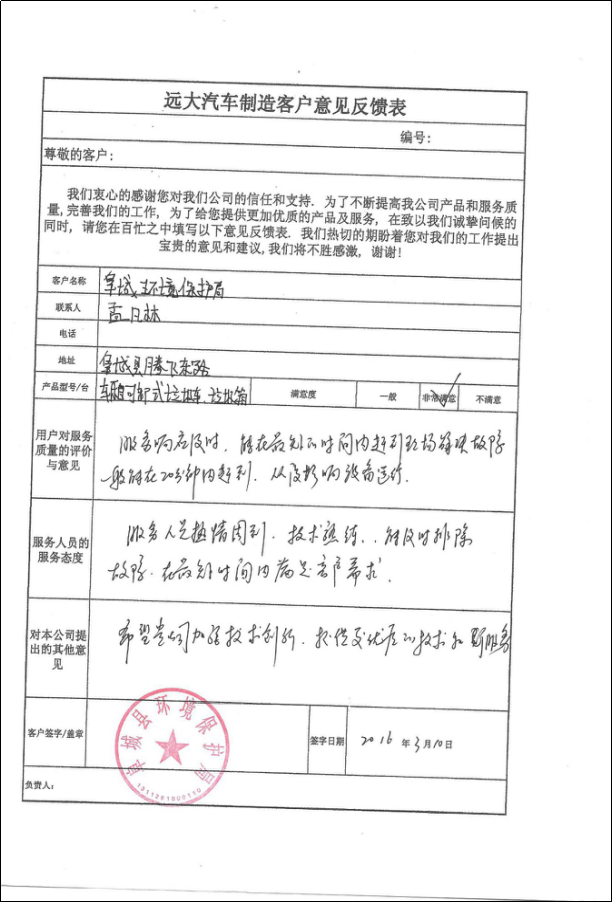 远大汽车制造客户意见反馈表
编号：
尊敬的客户：
我们衷心的感谢您对我们公司的信任和支持．为了不断提高我公司产品和服务质
量，完善我们的工作，为了给您提供更加优质的产品及服务，在致以我们诚挚问候的
同时，请您在百忙之中填写以下意见反馈表．我们热切的期盼着您对我们的工作提出
宝贵的意见和建议，我们将不胜感激，谢谢！
客户名称 阜城县环境保护局
联系人 孟凡林
电话
地址 阜城县腾飞东路
产品型号/台 车厢可卸式垃圾车 垃圾箱 满意度 一般 非常满意 不满意
用户对服务质量的评价与意见
服务响应及时，能在最短的时间内赶到现场解决故障
一般能在20分钟内赶到．从没影响设备运行．
服务人员的服务态度
服务人员热情周到．技术熟练．能及时排除
故障．在最短时间内满足客户需求．
对本公司提出的其他意见
希望贵公司加强技术创新．提供更优质的技术和 服务
客户签字/盖章 阜城县环境保护局 签字日期 2016 年 3月10日
负责人：